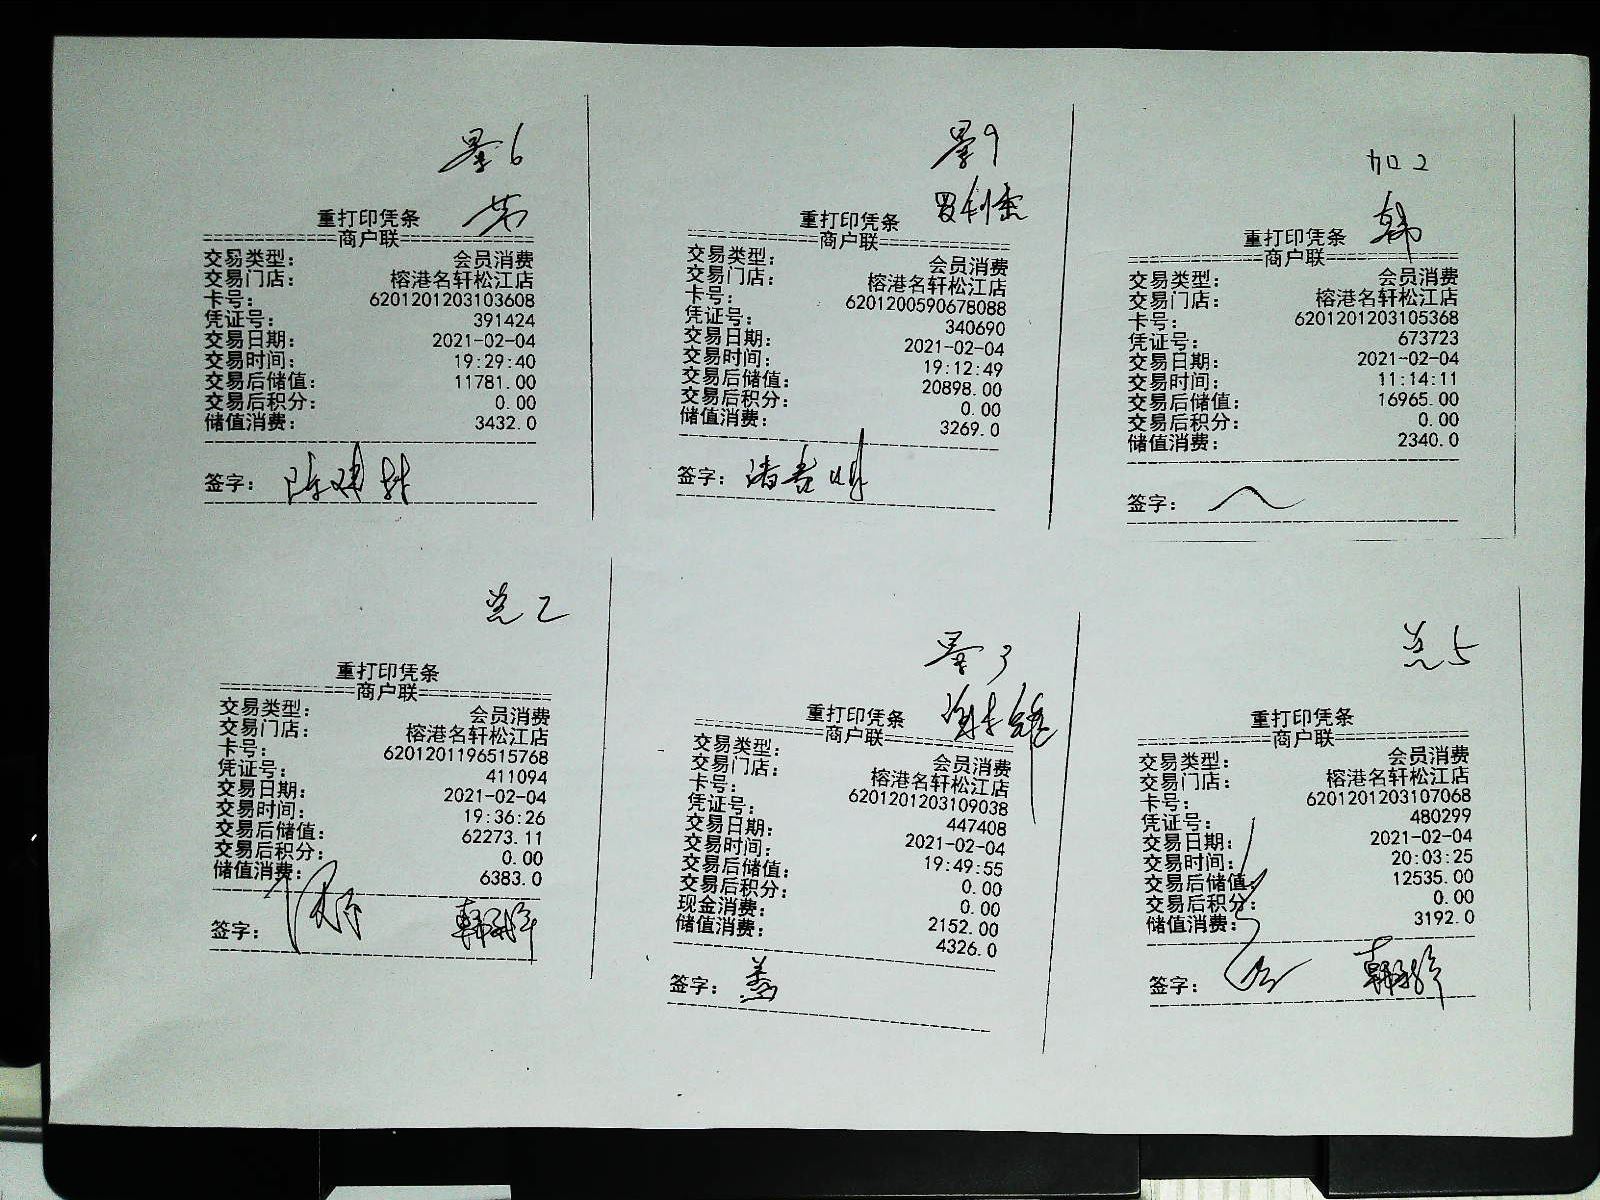 6
重打印凭条
商户联
交易类型： 会员消费
交易门店： 榕港名轩松江店
卡号： 6201201203103608
凭证号： 391424
交易日期： 2021-02-04
交易时间： 19:29:40
交易后储值： 11781.00
交易后积分： 0.00
储值消费： 3432.0
签字：
9
重打印凭条
商户联
交易类型： 会员消费
交易门店： 榕港名轩松江店
卡号： 6201200590678088
凭证号： 340690
交易日期： 2021-02-04
交易时间： 19:12:49
交易后储值： 20898.00
交易后积分： 0.00
储值消费： 3269.0
签字：
加2
韩
重打印凭条
商户联
交易类型： 会员消费
交易门店： 榕港名轩松江店
卡号： 6201201203105368
凭证号： 673723
交易日期： 2021-02-04
交易时间： 11:14:11
交易后储值： 16965.00
交易后积分： 0.00
储值消费： 2340.0
签字：
2
重打印凭条
商户联
交易类型： 会员消费
交易门店： 榕港名轩松江店
卡号： 6201201196515768
凭证号： 411094
交易日期： 2021-02-04
交易时间： 19:36:26
交易后储值： 62273.11
交易后积分： 0.00
储值消费： 6383.0
签字：
3
重打印凭条
商户联
交易类型： 会员消费
交易门店： 榕港名轩松江店
卡号： 6201201203109038
凭证号： 447408
交易日期： 2021-02-04
交易时间： 19:49:55
交易后储值： 0.00
交易后积分： 0.00
现金消费： 2152.00
储值消费： 4326.0
签字：
5
重打印凭条
商户联
交易类型： 会员消费
交易门店： 榕港名轩松江店
卡号： 6201201203107068
凭证号： 480299
交易日期： 2021-02-04
交易时间： 20:03:25
交易后储值： 12535.00
交易后积分： 0.00
储值消费： 3192.0
签字：